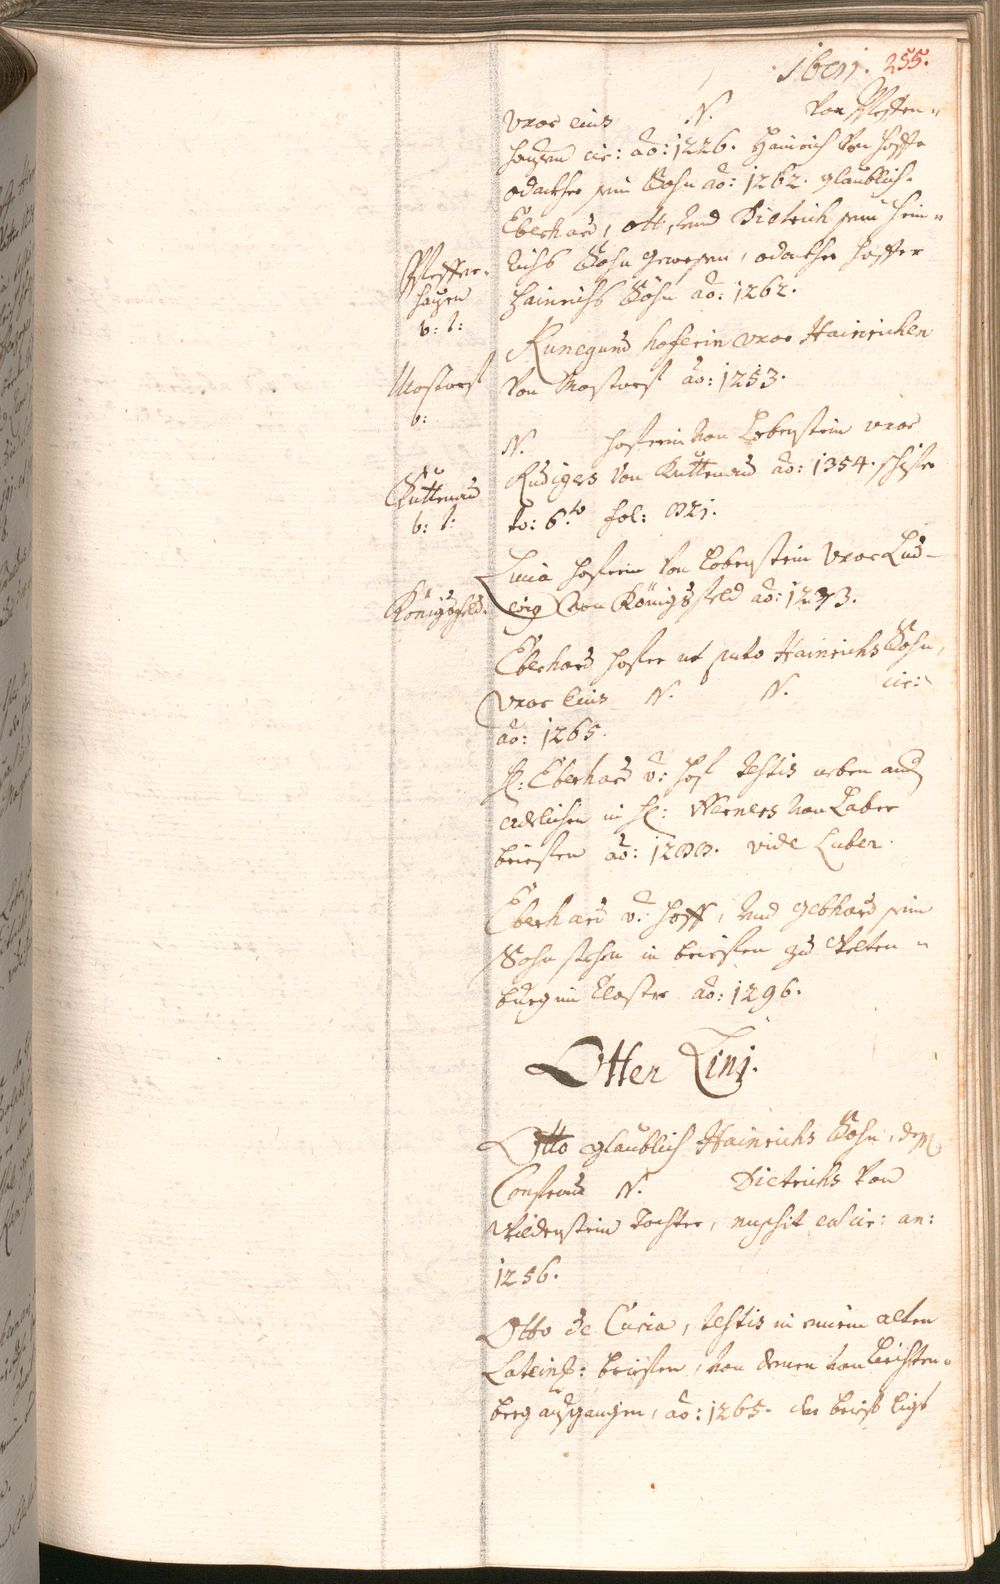 255.
uxor eius N. von Pfeffen=
hausen cir: aō: 1226. Hainrich von Hoff
odacker sein Sohn aō: 1262. glaublich
Eberhard, Ott, und Dietrich sein Hein=
richs Sohn gewesen, odacker Hoffer
Hainrichs Sohn aō: 1262.
Pfeffen=
hausen
v: t:
Kunegund hoferin uxor Hainrichen
von Mostorf aō: 1253.
Mostorf
v:
N. hoferin von Lobenstein uxor
Rudigers von Kuttenau aō: 1354.
to: 6to fol: 821.
Kuttenau
v: t:
Lucia hoferin von Lobenstein uxor Lud=
wig von Königsfeld aō: 1273.
Königsfeld.
Eberhard hofer ut puto Hainrichs Sohn,
uxor eius N. N. cir:
aō: 1265.
H: Eberhard v: Hof testis neben andern
adelichen in H: Werners von Laber
brieffen aō: 1288. vide Laber.
Eberhard v: Hoff, und Gebhard sein
Sohn stehen in brieffen zu Welten=
burg im Closter aō: 1296.
Otten Lini.
Otto glaublich Hainrichs Sohn, dessen
Hausfrau N. Dietrichs von
Wildenstein Tochter, nupsit ea cir: an:
1256.
Otto de Curia, testis in einem alten
Latein: brieffen, von denen von Leichten=
berg ausgangen, aō: 1265. der brieff ligt